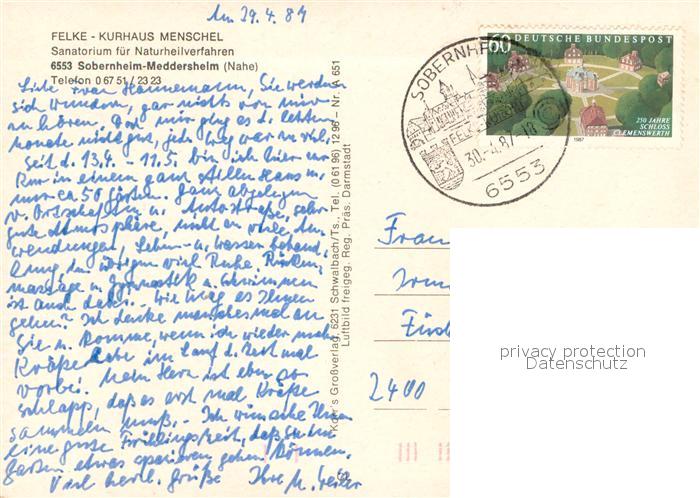 Am 29.4.87
FELKE - KURHAUS MENSCHEL
Sanatorium für Naturheilverfahren
6553 Sobernheim-Meddersheim (Nahe)
Telefon 0 67 51 / 23 23
Liebe Frau Hannemann, Sie werden
sich wundern, gar nichts von mir
zu hören. Doch mir ging es d. letzten
Monate nicht gut, jeder Weg war zu viel.
Seit d. 13.4. - 11.5. bin ich hier zur
Kur in einem ganz stillen Haus m.
nur ca. 50 Gästen. Ganz abgelegen
v. Ortschaften u. Autostraße, sehr
gute Atmosphäre, nicht zu viele An-
wendungen, Lehm- u. Wasserbehand-
lung, im übrigen viel Ruhe. Rücken-
massage u. Gymnastik u. Schwimmen
ist auch dabei. - Wie mag es Ihnen
gehen? Ich denke manchesmal an
Sie u. komme, wenn ich wieder mehr
Kräfte habe im Lauf d. Zeit mal
vorbei. Mein Herz ist eben so
schlapp, daß es erst mal Kräfte
sammeln muß. - Ich wünsche Ihnen
eine gute Frühlingszeit, daß Sie im
Garten etwas spazieren gehen können.
Viel herzl. Grüße Ihre M.
Luftbild freigeg. Reg. Präs. Darmstadt
Großverlag, 6231 Schwalbach/Ts., Tel. (0 61 96) 12 96 - Nr. A 651
SOBERNHEIM
FELKE
30.-4.87-18
6553
60 DEUTSCHE BUNDESPOST
250 JAHRE
SCHLOSS
CLEMENSWERTH
1987
Frau
2400
privacy protection
Datenschutz